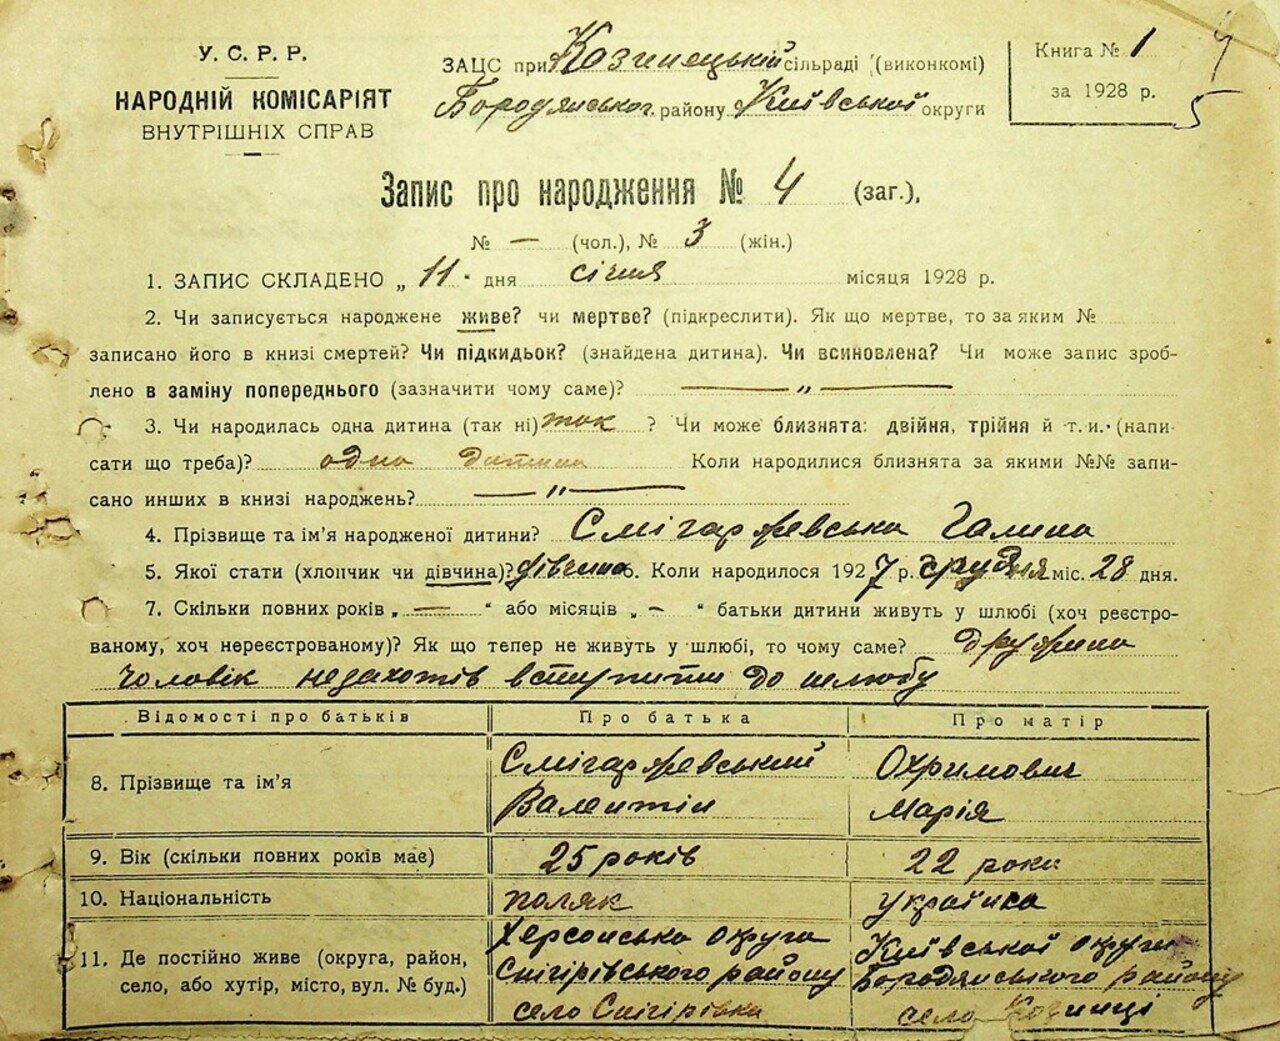 У. С. Р. Р.
НАРОДНІЙ КОМІСАРІЯТ
ВНУТРІШНІХ СПРАВ
ЗАЦС при Казинецькій сільраді (виконкомі)
Бородянськог. району Київської округи
Книга № 1
за 1928 р.
4
5
Запис про народження № 4 (заг.),
№ — (чол.), № 3 (жін.)
1. ЗАПИС СКЛАДЕНО „ 11 “ дня січня місяця 1928 р.
2. Чи записується народжене живе? чи мертве? (підкреслити). Як що мертве, то за яким №
записано його в книзі смертей? Чи підкидьок? (знайдена дитина). Чи всиновлена? Чи може запис зроб-
лено в заміну попереднього (зазначити чому саме)? — „ —
3. Чи народилась одна дитина (так ні) так ? Чи може близнята: двійня, трійня й т. и. (напи-
сати що треба)? одна дитина Коли народилися близнята за якими №№ запи-
сано инших в книзі народжень? — „ —
4. Прізвище та ім'я народженої дитини? Смігаржевська Галина
5. Якої стати (хлопчик чи дівчина)? дівчина 6. Коли народилося 1927 р. грудня міс. 28 дня.
7. Скільки повних років „ — “ або місяців „ — “ батьки дитини живуть у шлюбі (хоч реєстро-
ваному, хоч нереєстрованому)? Як що тепер не живуть у шлюбі, то чому саме? дружина
чоловік незахотів вступити до шлюбу
Відомості про батьків Про батька Про матір
8. Прізвище та ім'я Смігаржевський Валентін Охримович Марія
9. Вік (скільки повних років має) 25 років 22 роки
10. Національність поляк українка
11. Де постійно живе (округа, район, село, або хутір, місто, вул. № буд.)
Херсонська округа
Снігірівського району
село Снігірівка
Київської округи
Бородянського району
село Козинці